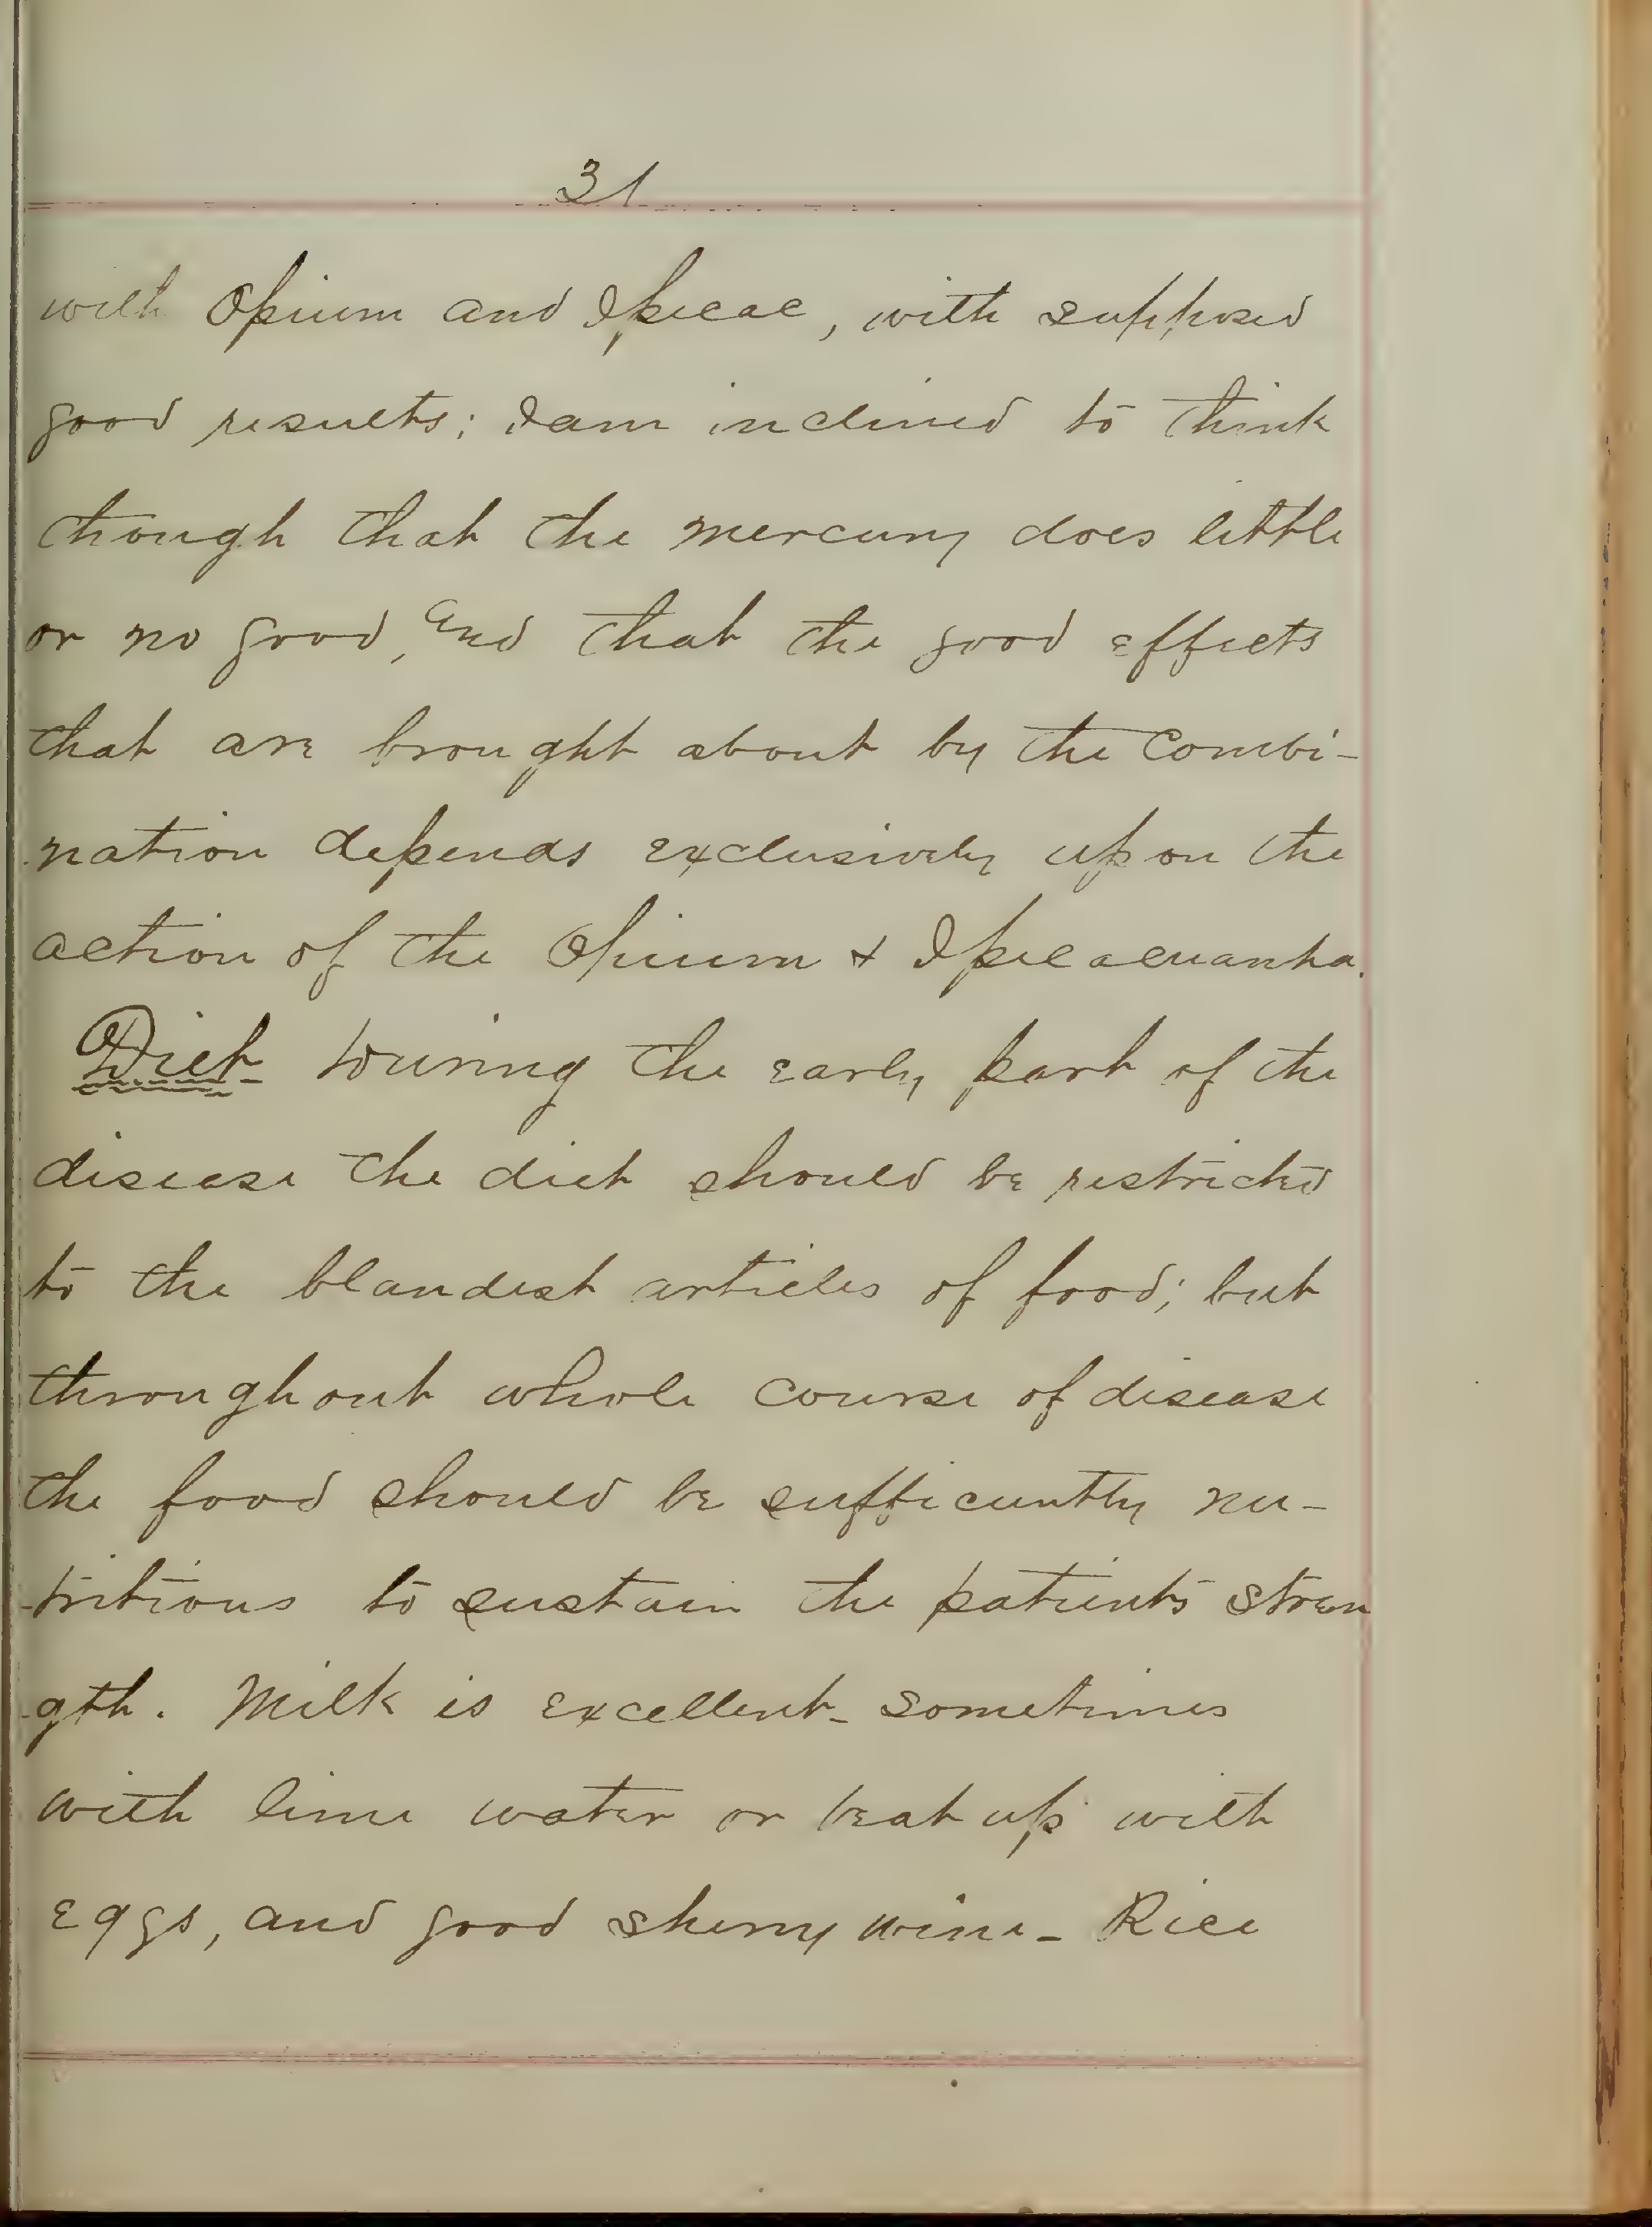 31
with Opium and Ipecac, with supposed
good results; I am inclined to think
though that the mercury does little
or no good, and that the good effects
that are brought about by the combi-
nation depends exclusively upon the
action of the Opium & Ipecacuanha.
Diet During the early part of the
disease the diet should be restricted
to the blandest articles of food; but
throughout whole course of disease
the food should be sufficiently nu-
-tritious to sustain the patients stren
-gth. Milk is excellent - sometimes
with lime water or beat up with
eggs, and good sherry wine - Rice